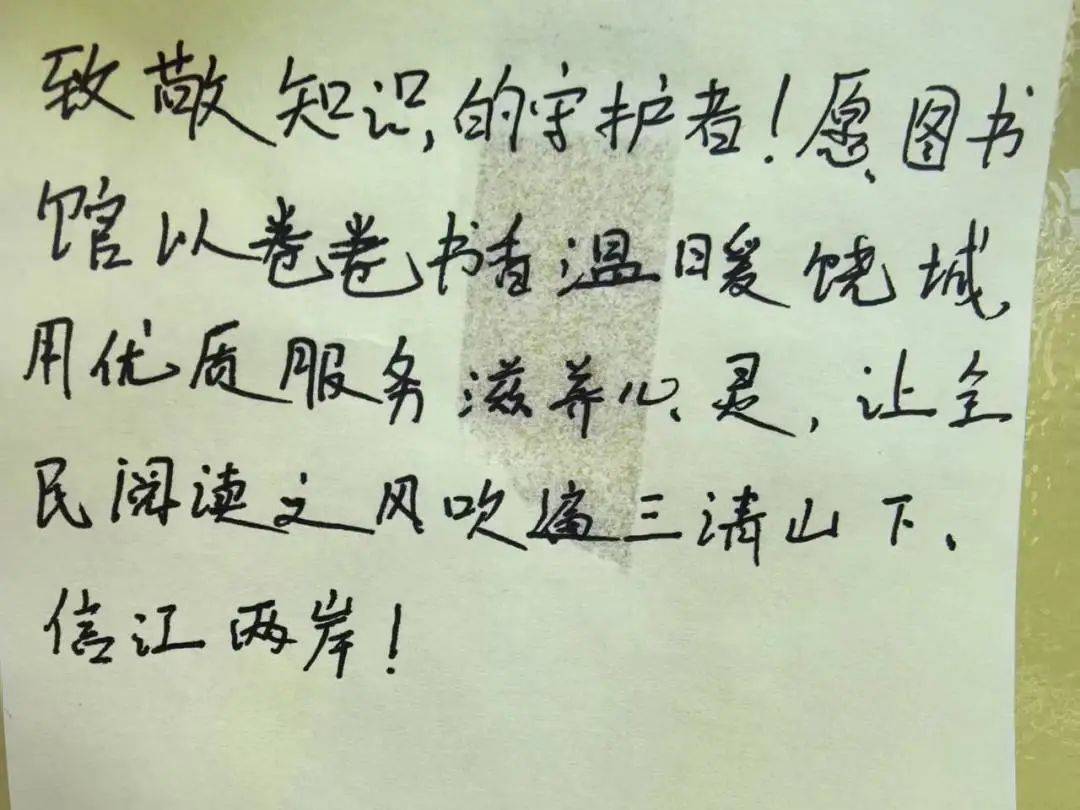 致敬知识的守护者！愿图书
馆以卷卷书香温暖饶城，
用优质服务滋养心灵，让全
民阅读之风吹遍三清山下、
信江两岸！